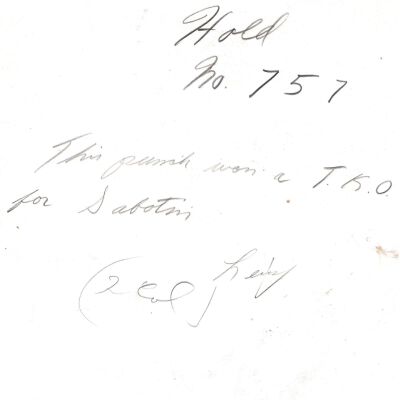 Hold
No. 757
This punch won a T.K.O.
for Sabotin
(2 Col)